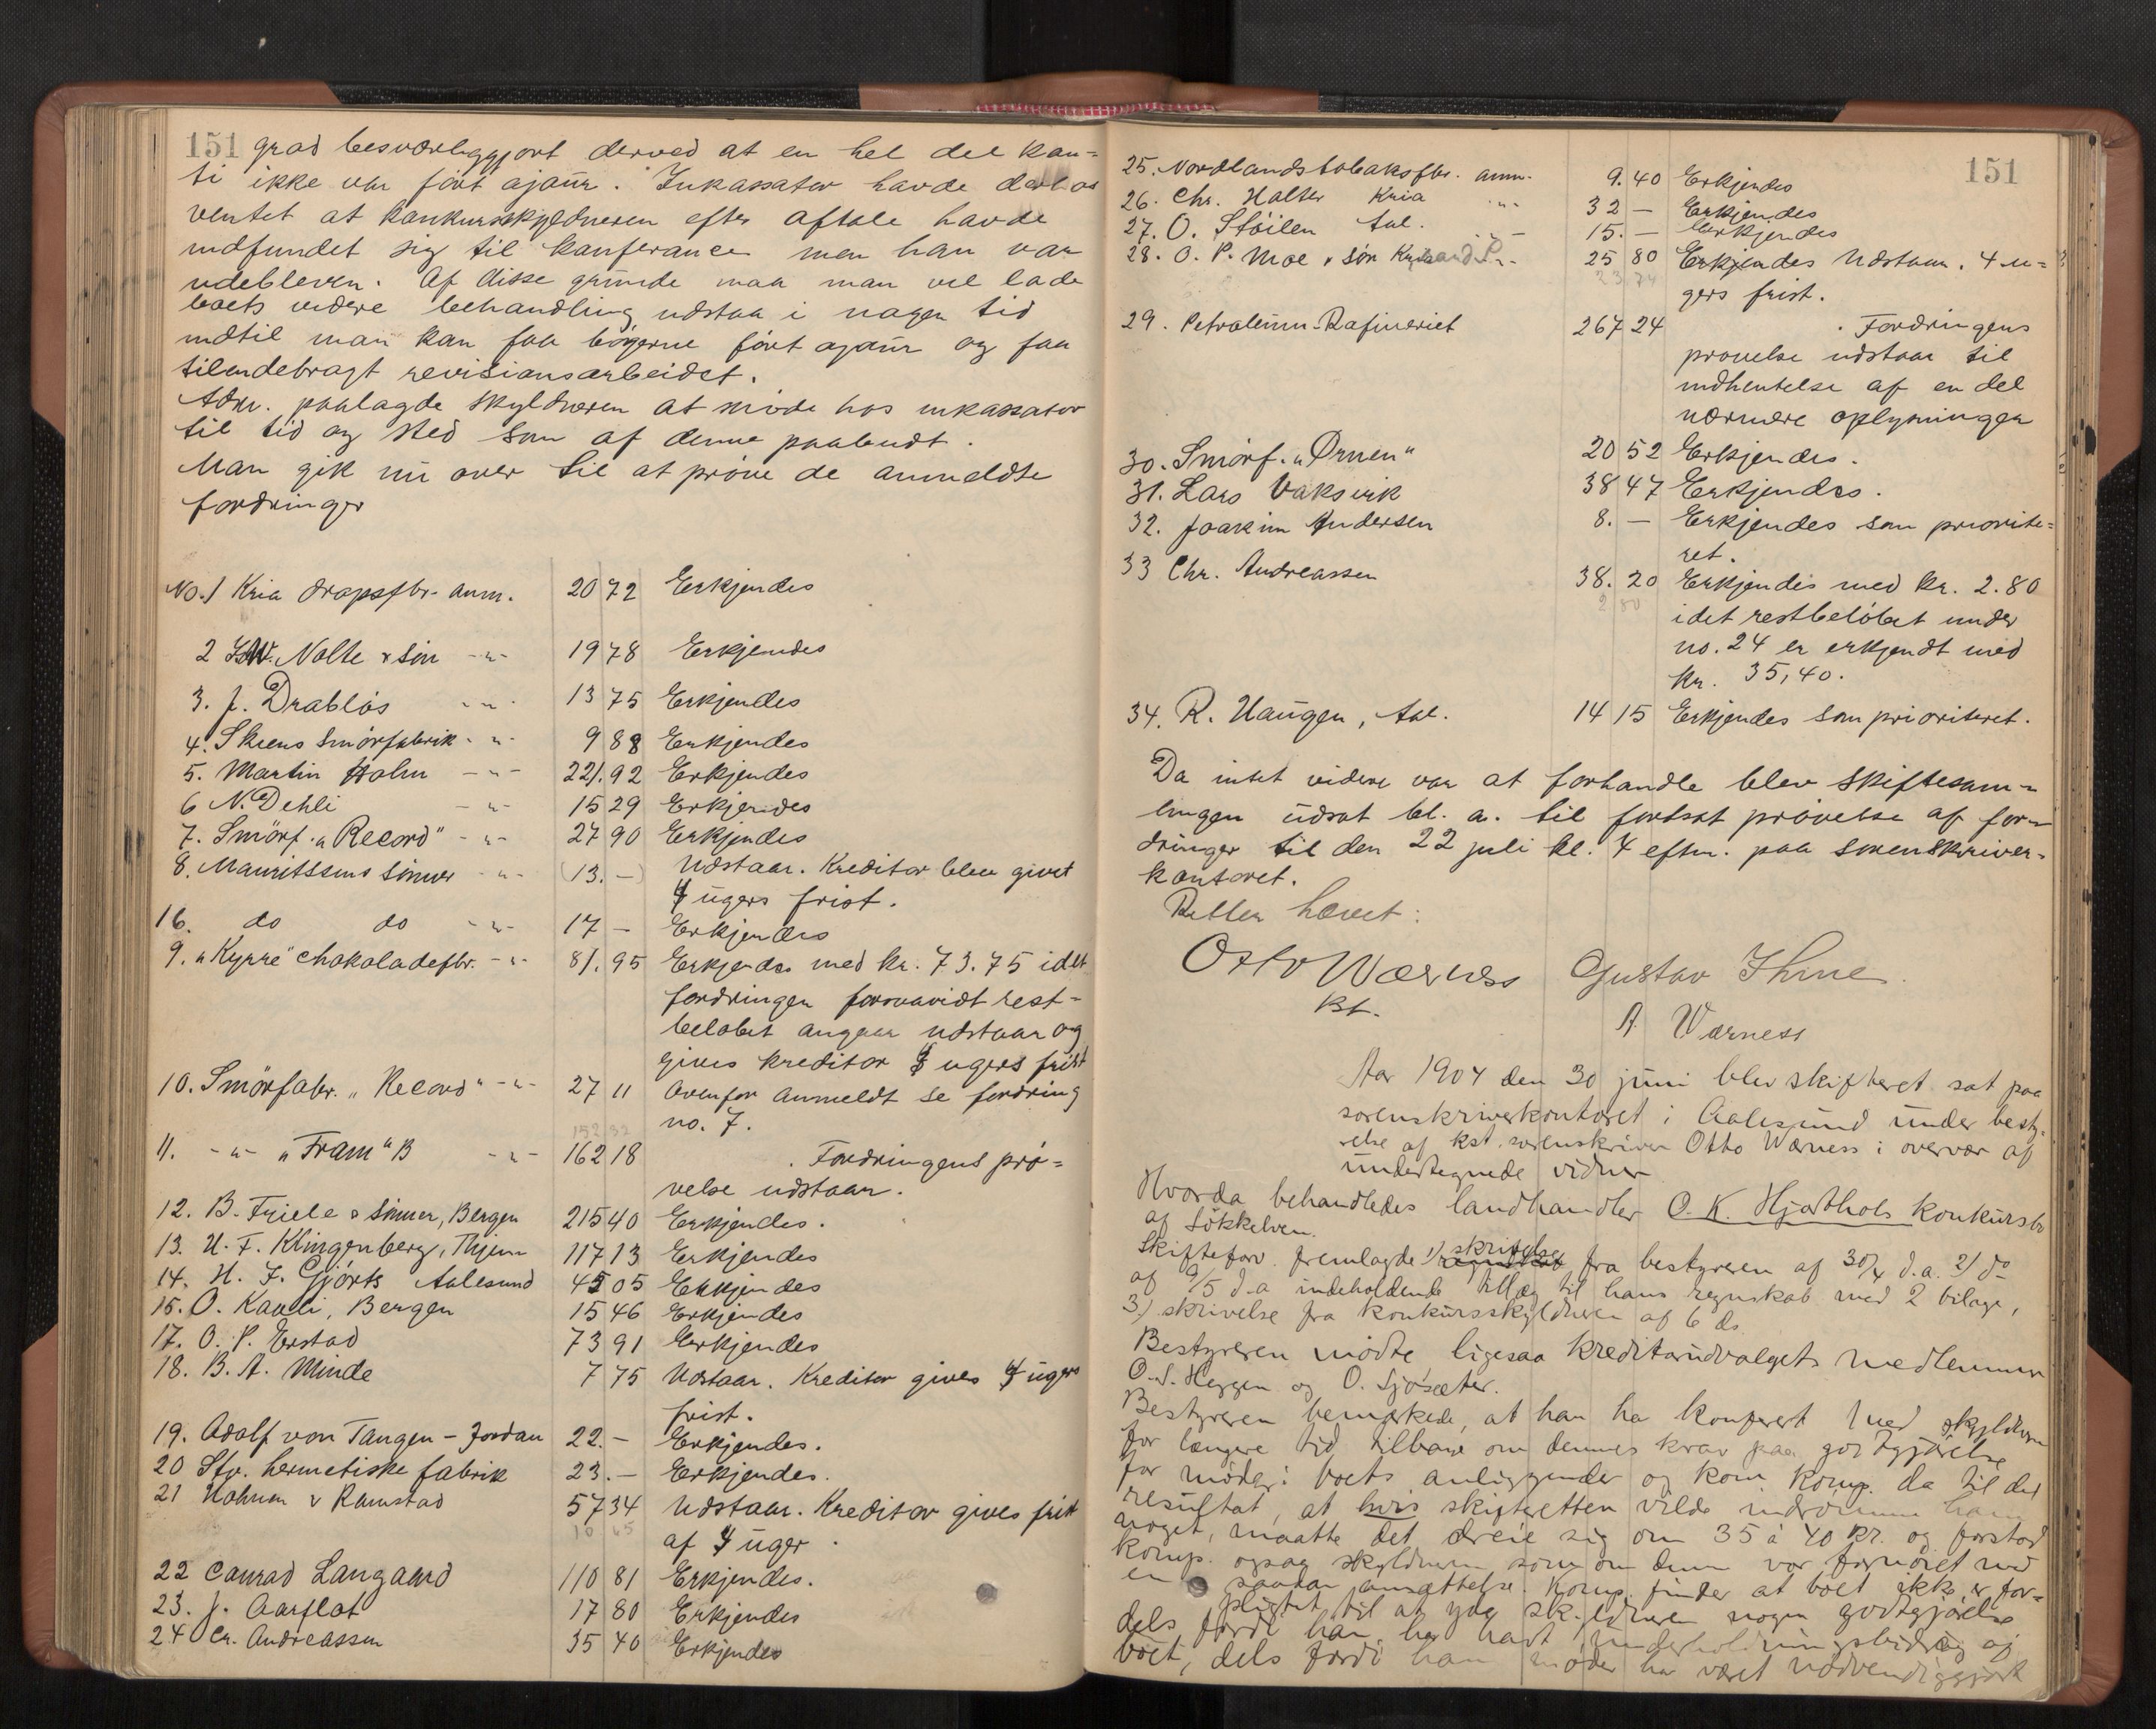 151
grad besværliggjort derved at en hel del kon-
ti ikke var ført ajour. Inkassator havde derhos
ventet at konkursskyldneren efter aftale havde
indfundet sig til konferance men han var
udebleven. Af disse grunde maa man vel lade
boets videre behandling udstaa i nogen tid
indtil man kan faa bøgerne ført ajour og faa
tilendebragt revisionsarbeidet.
Adm. paalagde skyldneren at møde hos inkassator
til tid og sted som af denne paabudt.
Man gik nu over til at prøve de anmeldte
fordringer
No. 1 Kria dropsfbr. anm. 20 72 Erkjendes
2 Nolte & søn -"- 19 78 Erkjendes
3. J. Drabløs -"- 13 75 Erkjendes
4. Skiens Smørfabrik -"- 9 88 Erkjendes
5. Martin Holm -"- 221.92 Erkjendes
6 N. Dehli -"- 15 29 Erkjendes
7. Smørf. "Record" -"- 27 90 Erkjendes
8. Mauritssens sønner -"- (13.-) Udstaar. Kreditor blev givet
4 ugers frist.
16. do do -"- 17 - Erkjendes
9. "Kyrre" Chokoladefbr. -"- 81.95 Erkjendes med kr. 73.75 idet
fordringen forsaavidt rest-
beløbet angaar udstaar og
gives kreditor 4 ugers frist
10. Smørfabr. "Record" -"- 27 11 Ovenfor anmeldt se fordring
no. 7.
11. -"- "Fram" B -"- 162 18 Fordringens prø-
velse udstaar.
12. B. Friele & sønner, Bergen 215 40 Erkjendes.
13. U. F. Klingenberg, Thjem 117 13 Erkjendes
14. H. J. Gjørts Aalesund 45 05 Erkjendes
15. O. Kavli, Bergen 15 46 Erkjendes
17. O. P. Erstad 73 91 Erkjendes
18. B. A. Minde 7 75 Udstaar. Kreditor gives 4 ugers
frist.
19. Adolf von Tangen - Jordan 22.- Erkjendes.
20 Stv. hermetiske fabrik 23.- Erkjendes.
21 Hohman & Ramstad 57 34 Udstaar. Kreditor gives frist
af 4 uger
22 Conrad Langaard 110 81 Erkjendes.
23. J. Aarflot 17 80 Erkjendes
24 Cr. Andreassen 35 40 Erkjendes
151
25. Nordlands tobaksfbr. anm. 9.40 Erkjendes
26. Chr. Holter Kria -"- 32 - Erkjendes
27. O. Støilen Aal. -"- 15.- Erkjendes
28. O. P. Moe & søn 25 80 Erkjendes Udstaar. 4 u-
23 74
gers frist.
29. Petroleum-Rafineriet 267 24 Fordringens
prøvelse udstaar til
indhentelse af en del
nærmere oplysninger
30. Smørf. "Ørnen" 20 52 Erkjendes.
31. Lars Vaksvik 38 47 Erkjendes.
32. Joakim Andersen 8.- Erkjendes som priorite-
ret.
33 Chr. Andreassen 38.20 Erkjendes med kr. 2.80
2 80
idet restbeløbet under
no. 24 er erkjendt med
kr. 35,40.
34. R. Haugen, Aal. 14 15 Erkjendes som prioriteret.
Da intet videre var at forhandle blev skiftesam-
lingen udsat bl. a. til fortsat prøvelse af for-
dringer til den 22 juli kl. 4 eftm. paa sorenskriver-
kontoret.
Retten hævet:
Otto Wærness Gustav Ihme
kst.
A Wærness
Aar 1904 den 30 juni blev skifteret sat paa
sorenskriverkontoret i Aalesund under besty-
relse af kst. sorenskriver Otto Wærness i overvær af
undertegnede vidner
Hvorda behandledes landhandler O. K. Hjorthols konkursbo
af Søkkelven.
Skifteforv. fremlagde 1) skrivelse fra bestyreren af 30/4 d.a. 2) do
af 9/5 d.a indeholdende tillæg til hans regnskab med 2 bilage,
3) skrivelse fra konkursskyldneren af 6 ds.
Bestyreren mødte ligesaa kreditorudvalgets medlemmer
O. S. Heggen og O. Sjøsæter.
Bestyreren bemærkede, at han ha konferert med skyldneren
for længere tid tilbage om dennes krav paa godtgjørelse
for møder i boets anliggender og kom komp. da til det
resultat, at hvis skifteretten vilde indrømme ham
noget, maatte det dreie sig om 35 à 40 kr. og forstod
komp. ogsaa skyldneren som om denn var fornøiet med
en saadan ansættelse. Komp. finder at boet ikke er for-
pligtet til at yde skyldneren nogen godtgjørelse
dels fordi han har havt underholdningsbidrag af
boet, dels fordi han møder har været nødvendiggjort